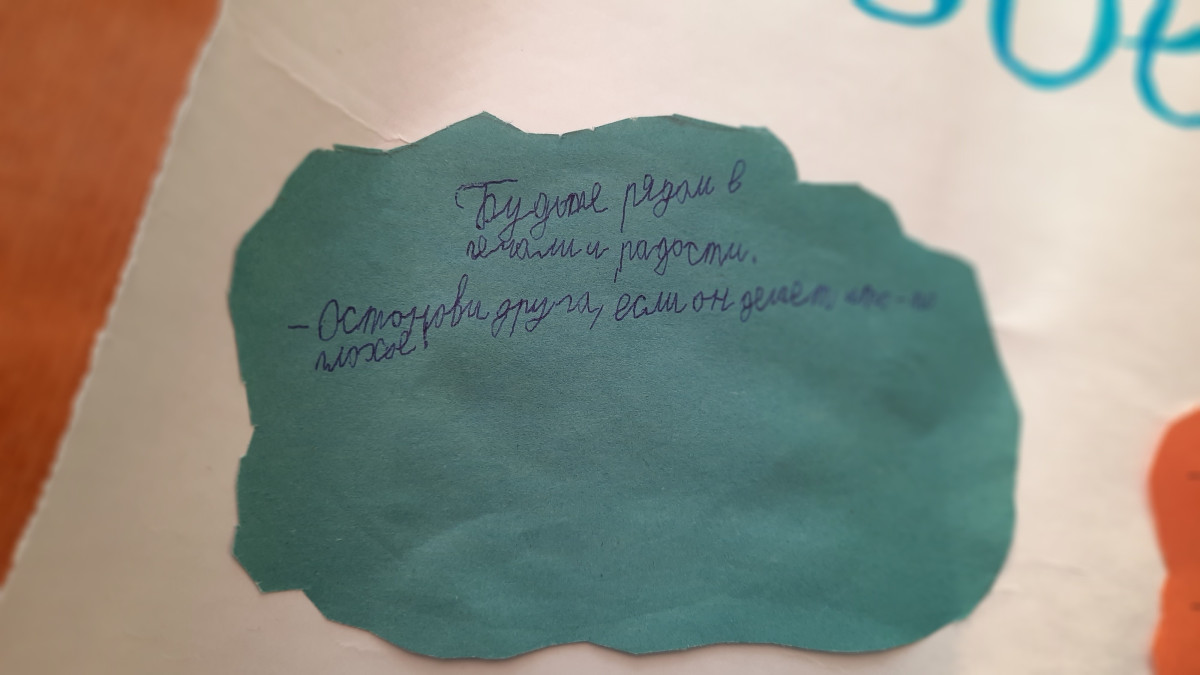 Будьте рядом в
печали и радости.
- Останови друга, если он делает что-то
плохое!